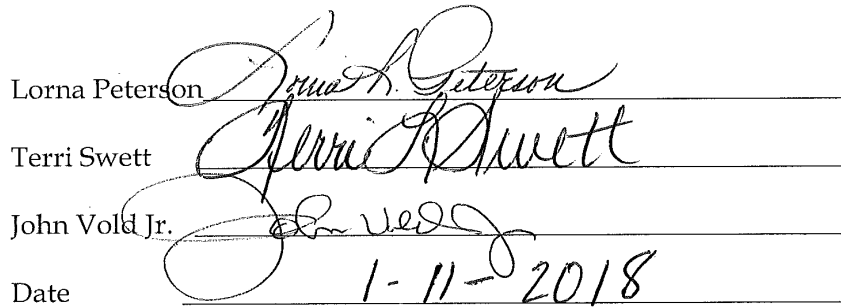 Lorna Peterson Lorna L. Peterson
Terri Swett Terri L Swett
John Vold Jr. John Vold Jr
Date 1-11-2018